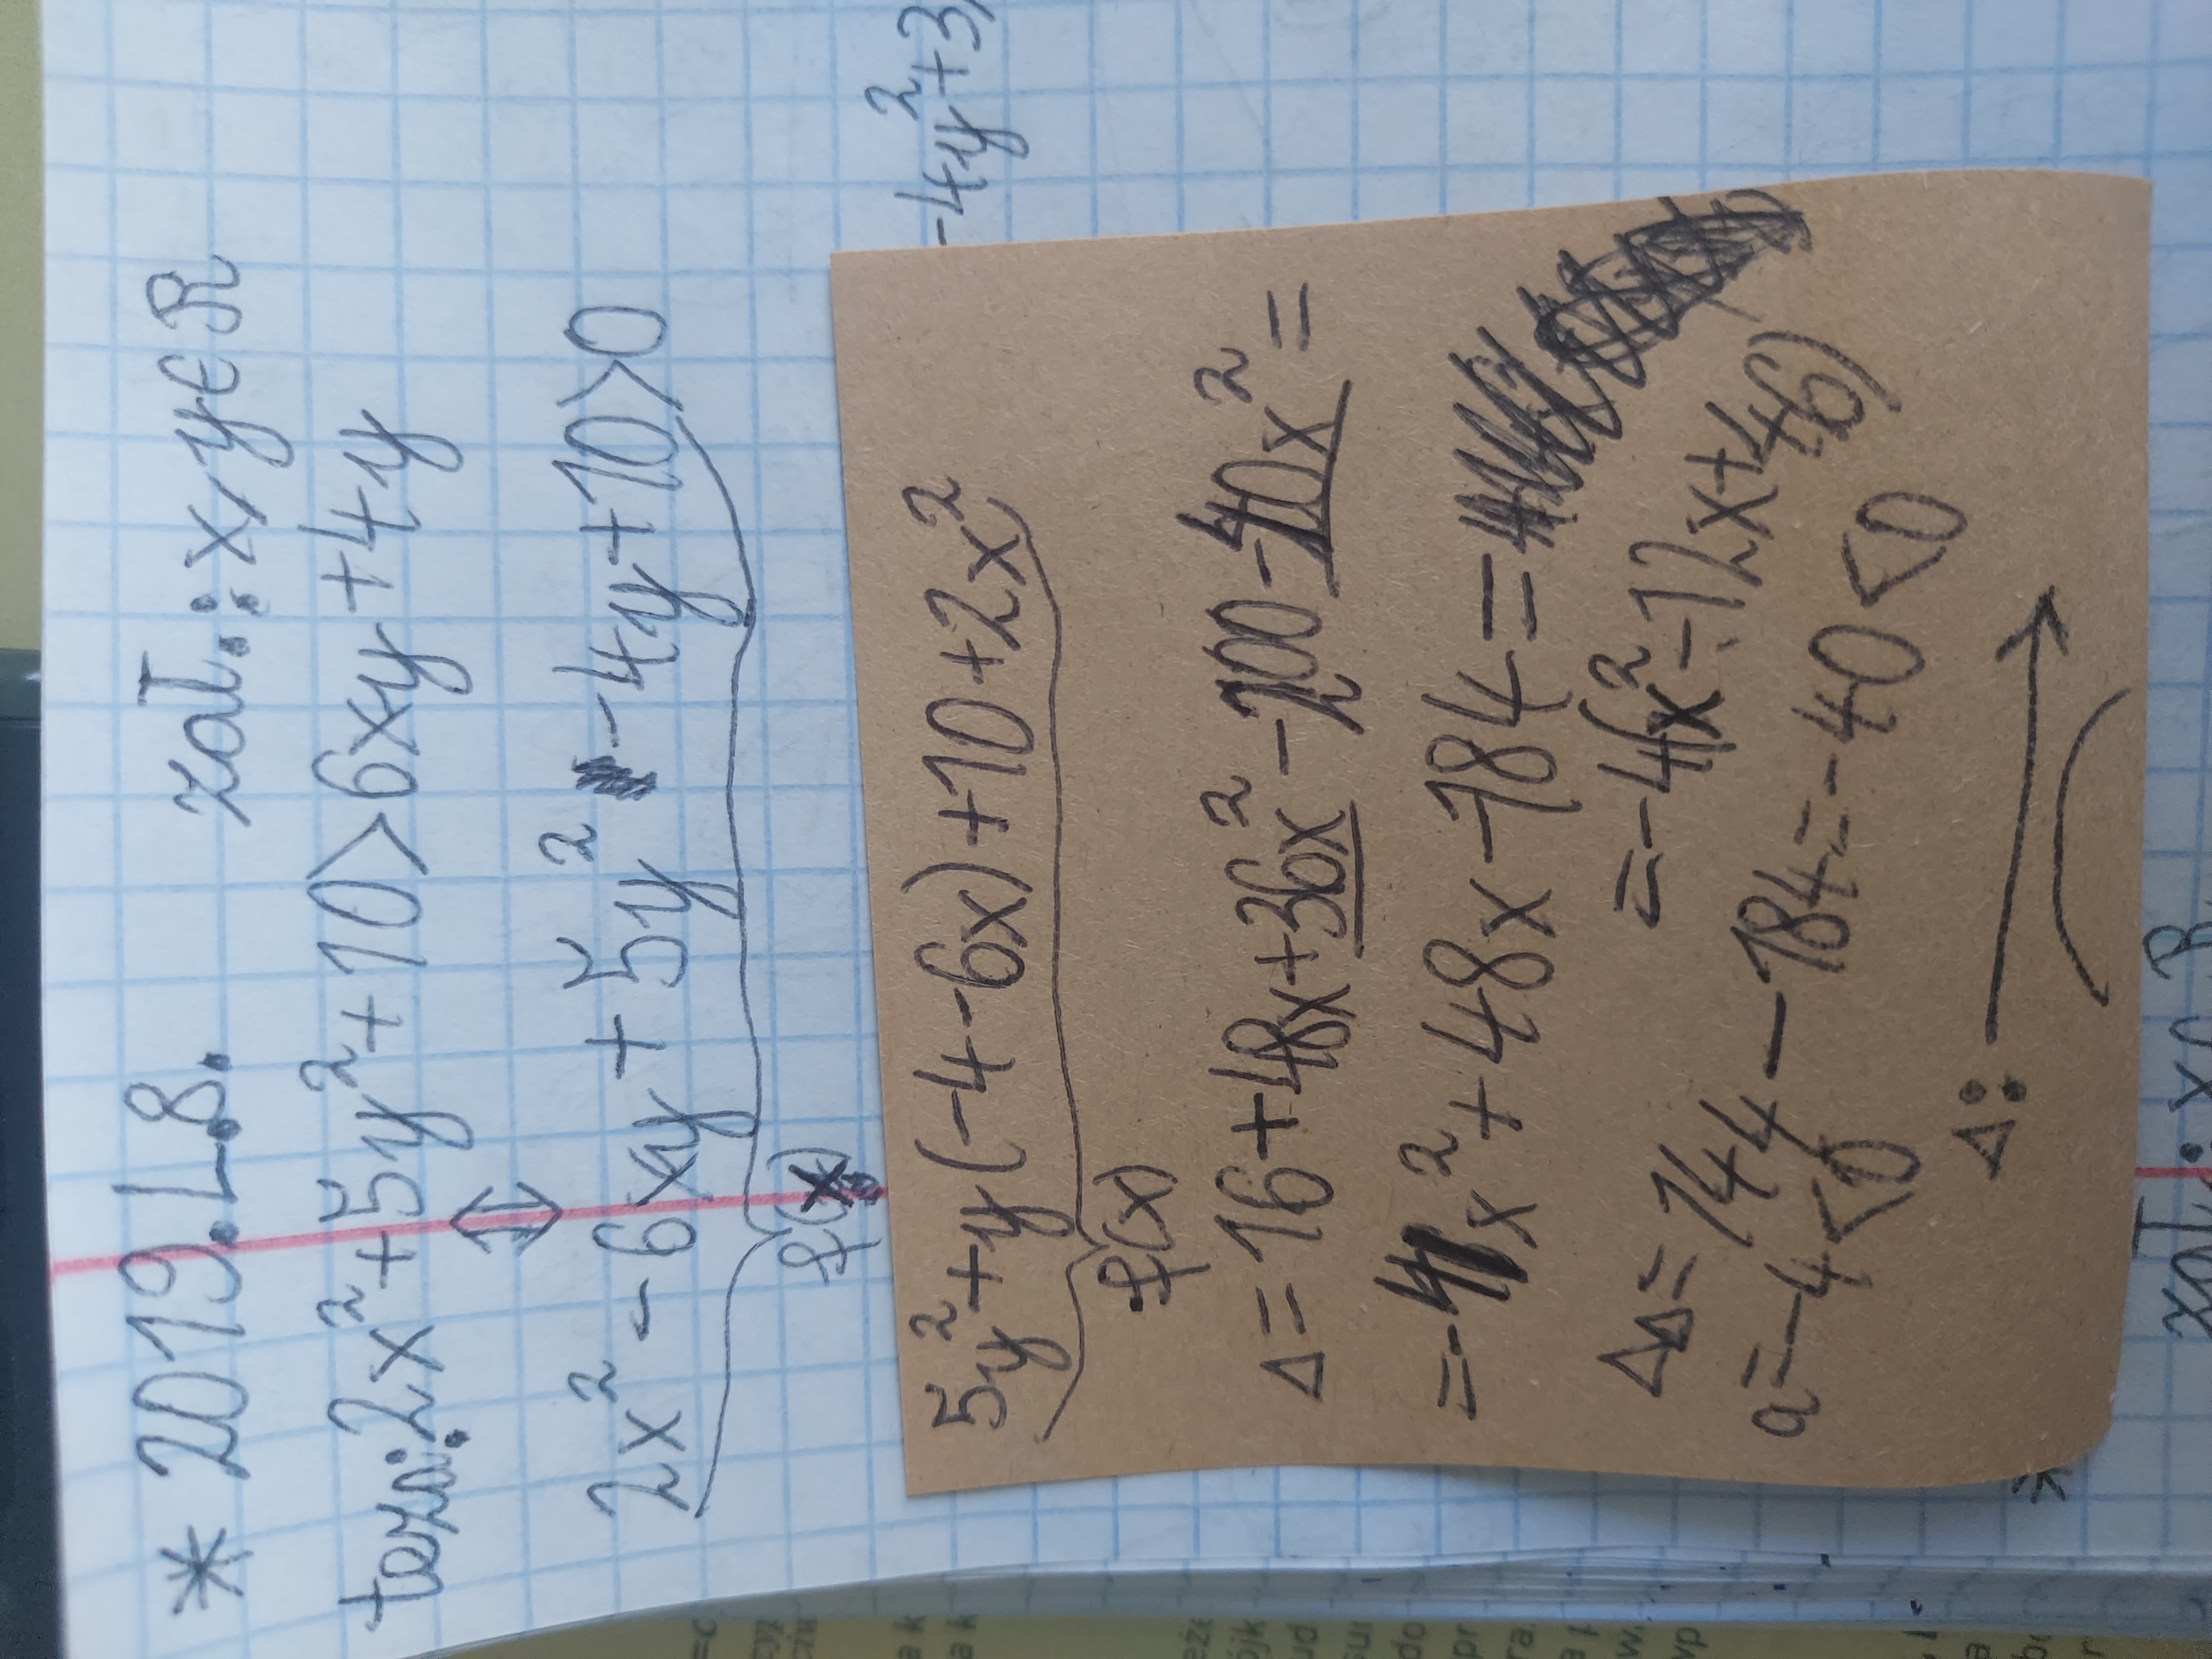 * 2019.L8. zał.: x,y∈R
teza: 2x²+5y²+10>6xy+4y
⇕
2x²-6xy+5y²-4y+10>0
f(x)
-4y²+3
5y²+y(-4-6x)+10+2x²
f(x)
Δ=16+48x+36x²-200-40x²=
=-4x²+48x-184=
=-4(x²-12x+46)
Δ=144-184=-40<0
a=-4<0
Δ:
zał.: x∩R